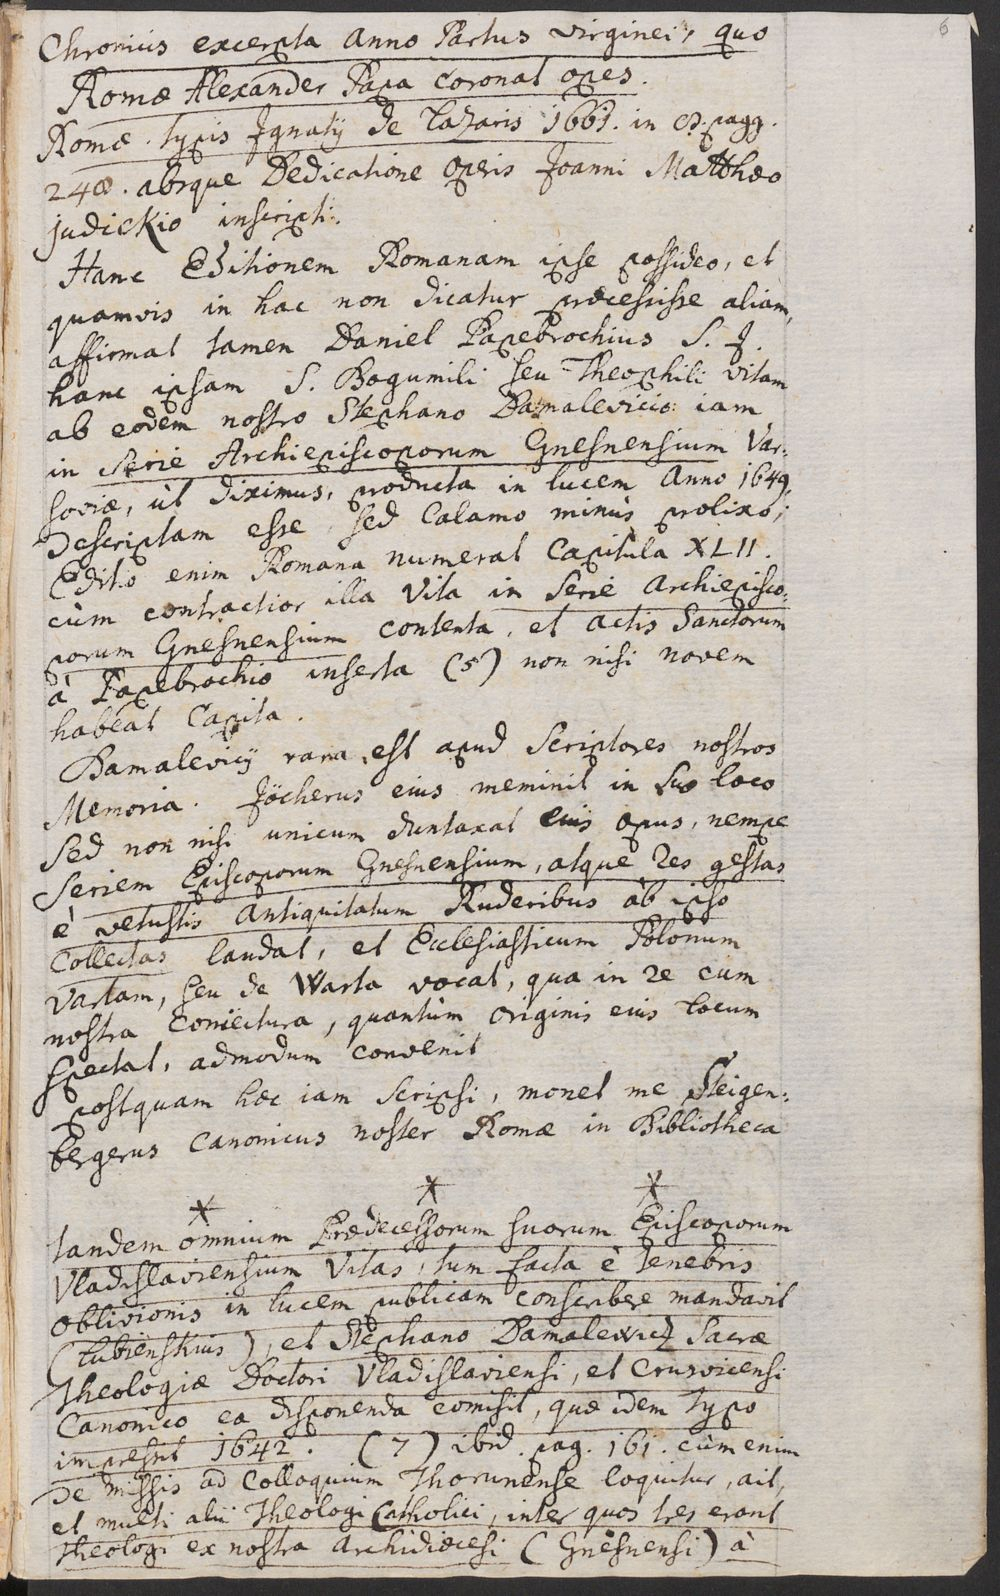 6
Chronicis excerpta Anno Partus virginei, quo
Romæ Alexander Papa coronat opes.
Romæ. typis Ignatij de Lazaris 1661. in 8. pagg.
248. absque Dedicatione operis Joanni Matthæo
judickio inscripti.
Hanc Editionem Romanam ipse possideo, et
quamvis in hac non dicatur præcessisse aliam,
affirmat tamen Daniel Papebrochius S. J.
hanc ipsam S. Bogumili seu Theophili vitam
ab eodem nostro Stephano Damalevicio iam
in Serie Archiepiscoporum Gnesnensium Var-
soviæ, ùt diximus, producta in lucem Anno 1649,
descriptam esse, sed Calamo minùs prolixo;
Editio enim Romana numerat Capitula XLII.
cùm contractior illa Vita in Serie Archiepisco-
porum Gnesnensium contenta, et actis Sanctorum
à Papebrochio inserta (5) non nisi novem
habeat Capita.
Damalevicij rara est apud Scriptores nostros
Memoria. Jöcherus eius meminit in suo loco
sed non nisi unicum duntaxat eius opus, nempe
Seriem Episcoporum Gnesnensium, atque res gestas
è vetustis Antiquitatum Ruderibus ab ipso
Collectas laudat, et Ecclesiasticum Polonum
Vartam, seu de Warta vocat, qua in re cum
nostra coniectura, quantùm originis eius locum
spectat, admodum convenit
postquam hæc iam scripsi, monet me Steigen-
bergerus Canonicus noster Romæ in Bibliotheca
* * *
tandem omnium Prædecessorum suorum Episcoporum
Vladislaviensium Vitas, tum facta è tenebris
oblivionis in lucem publicam conscribere mandavit
(Lubienskius), et Stephano Damalewicz Sacræ
Theologiæ Doctori Vladislaviensi, et Crusvicensi
Canonico ea disponenda comisit, quæ idem typo
impressit 1642. (7) ibid. pag. 161. cùm enim
de missis ad Colloquium Thorunense loquitur, ait,
et multi alii Theologi Catholici, inter quos tres erant
Theologi ex nostra Archidiœcesi (Gnesnensi) à